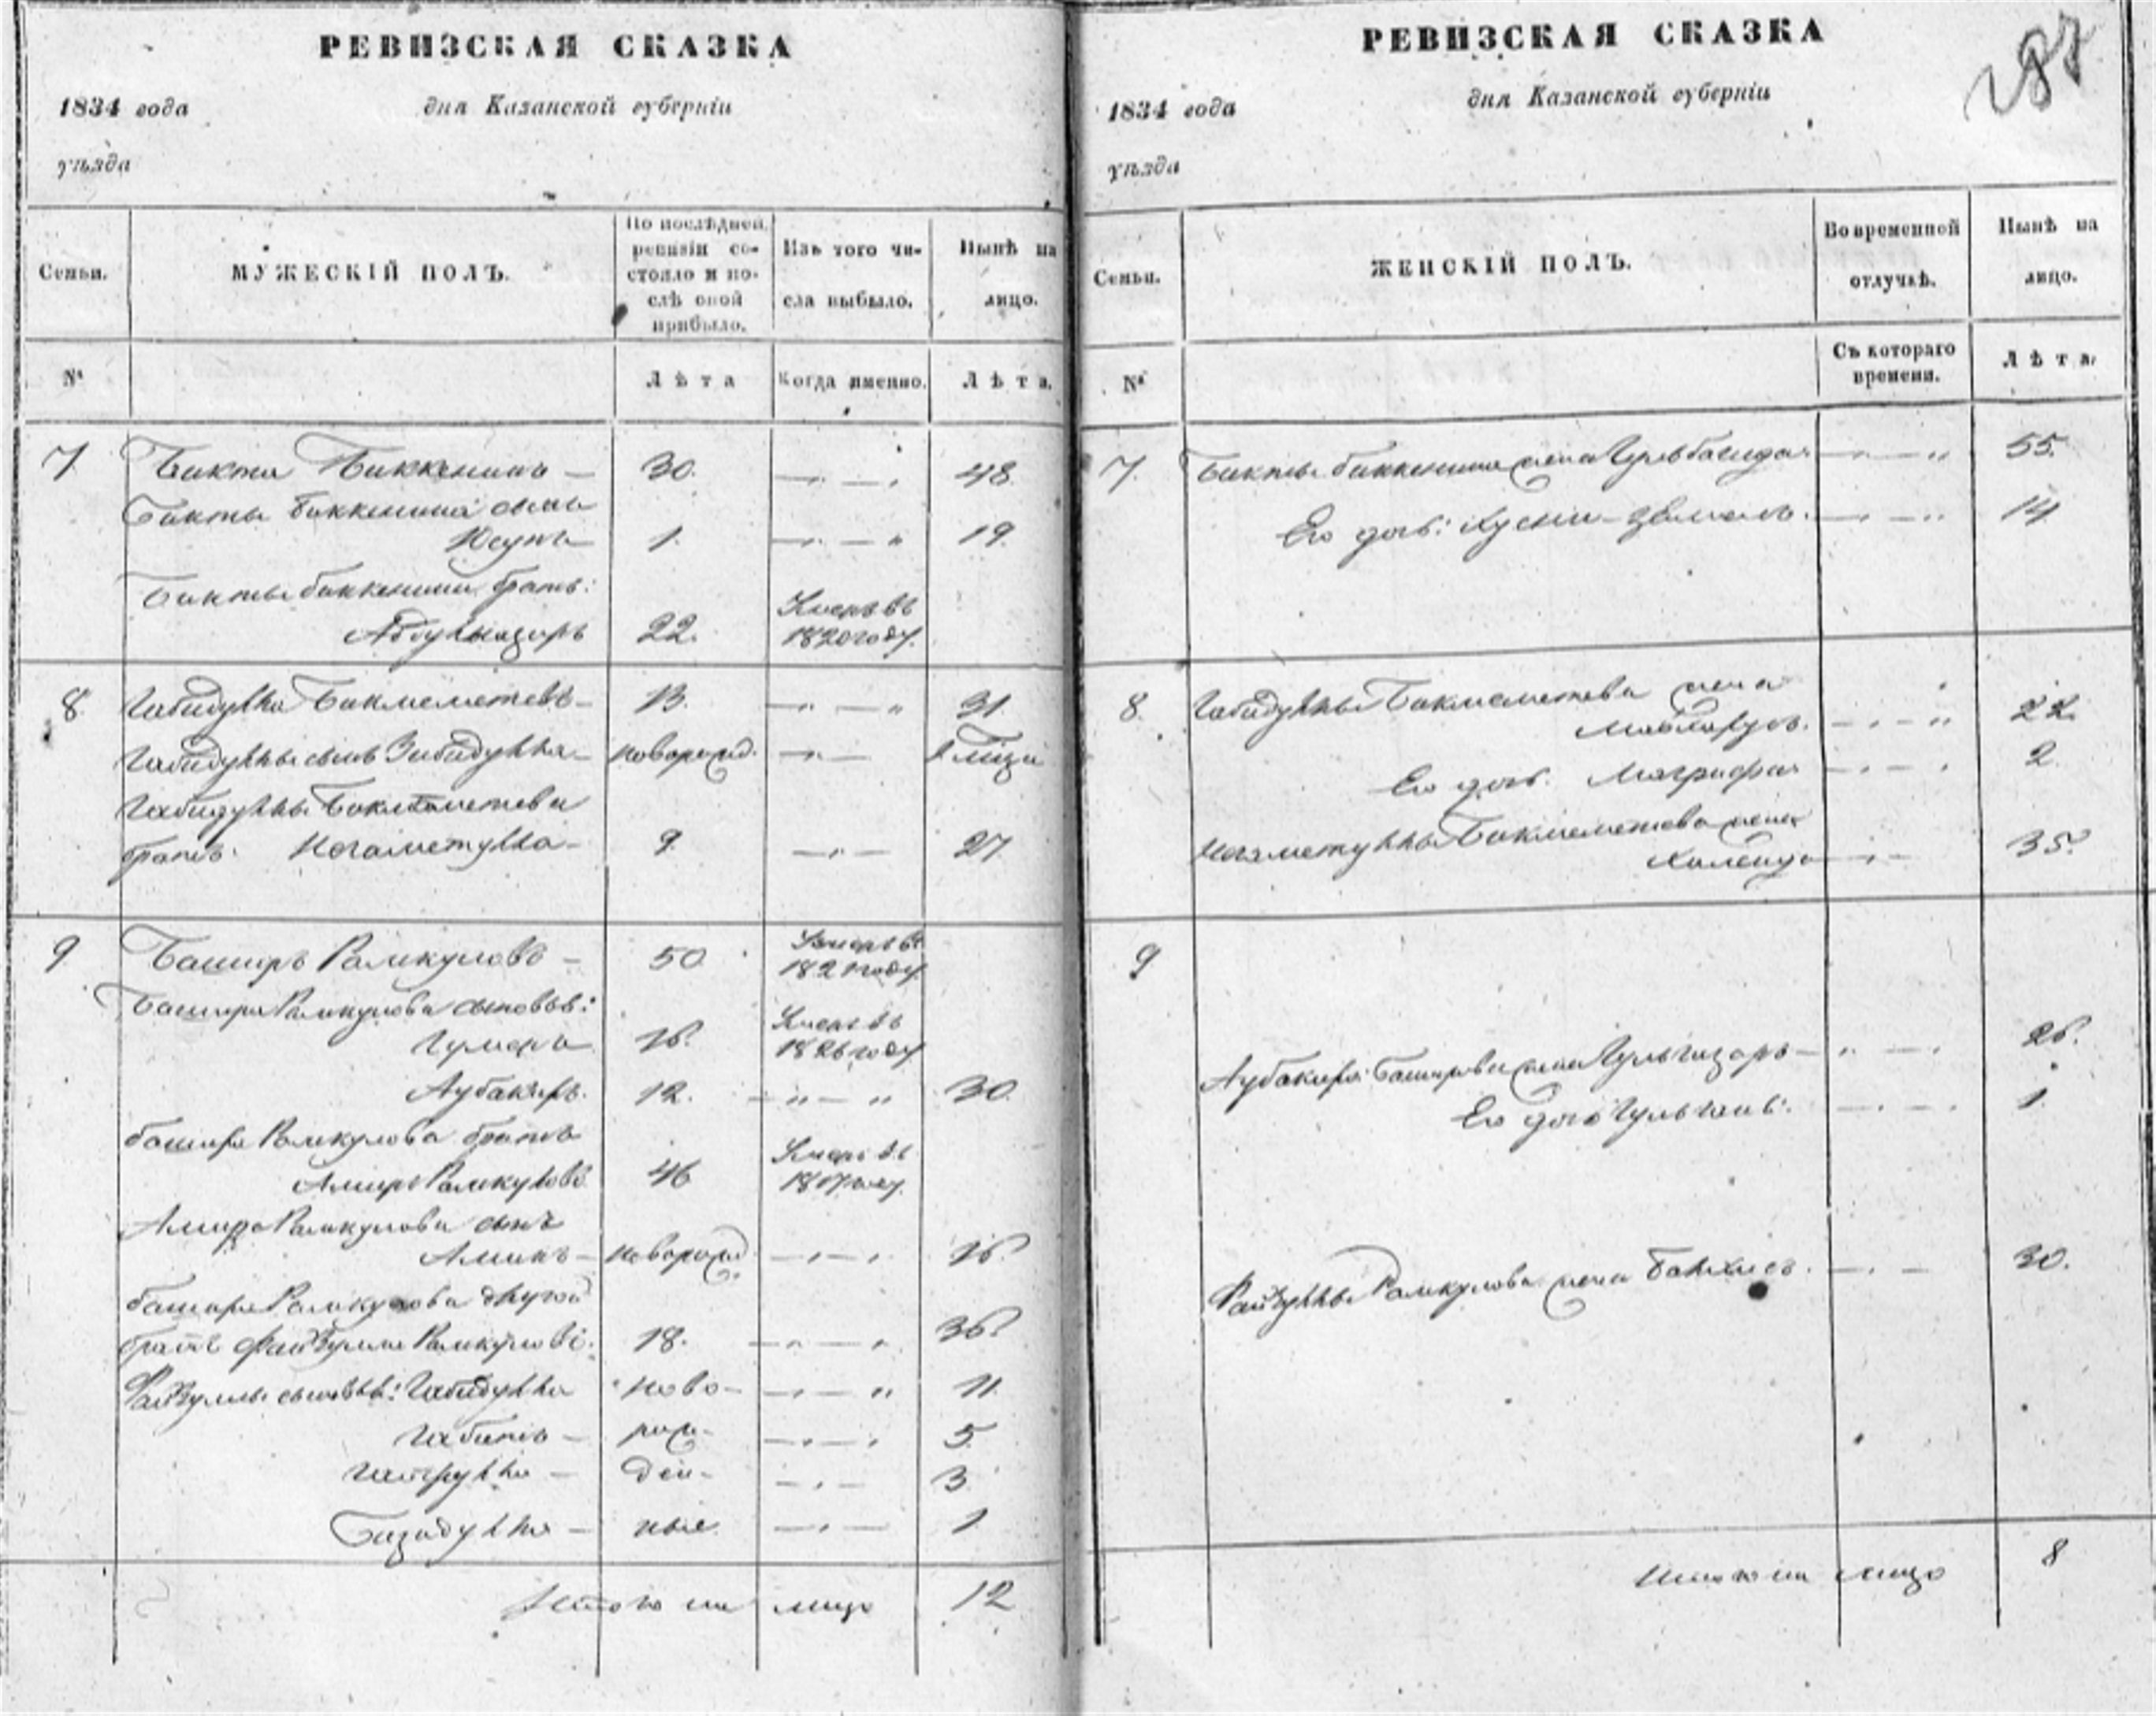 РЕВИЗСКАЯ СКАЗКА
1834 года дня Казанской губерніи
уѣзда
Семьи. МУЖЕСКІЙ ПОЛЪ. По послѣдней ревизіи состояло и послѣ оной прибыло. Изъ того числа выбыло. Нынѣ на лицо.
№ Лѣта Когда именно. Лѣта.
7. Бикта Биккенинъ — 30. 48.
Бикты Биккенина сынъ
Юсупъ 1. 19.
Бикты Биккенина братъ: Умеръ въ
22. 1820 году.
8. Габидулла Бикмеметевъ — 13. 31.
Габидуллы сынъ Зибидулла — новорожд.
Габидуллы Бикмеметева
братъ: Негаметулла — 9. 27
9. Баширъ Рамкуловъ — 50 Умеръ въ 1821 году.
Башира Рамкулова сыновья:
Гумеръ 16. Умеръ въ 1826 году
Аубакиръ. 12. 30.
Башира Рамкулова братъ
Амиръ Рамкуловъ 46 Умеръ въ
Амира Рамкулова сынъ
Аминъ — новорожд. 16.
Башира Рамкулова другой
братъ Файзулла Рамкуловъ. 18. 36.
Файзуллы сыновья: Габидулла ново- 11.
Габитъ — рож- 5.
ден- 3.
ные 1
Итого на лицо 12
РЕВИЗСКАЯ СКАЗКА
1834 года дня Казанской губерніи
уѣзда
Семьи. ЖЕНСКІЙ ПОЛЪ. Во временной отлучкѣ. Нынѣ на лицо.
№ Съ котораго времени. Лѣта.
7. Бикты Биккенина жена 55.
Его дочь: 14
8. Габидуллы Бикмеметева жена
22.
Его дочь. Магрифа 2
Негаметуллы Бикмеметева жена
35.
9
Аубакира Баширова жена Гульгизаръ — 26.
Его дочь 1.
Файзуллы Рамкулова жена 30.
Итого на лицо 8